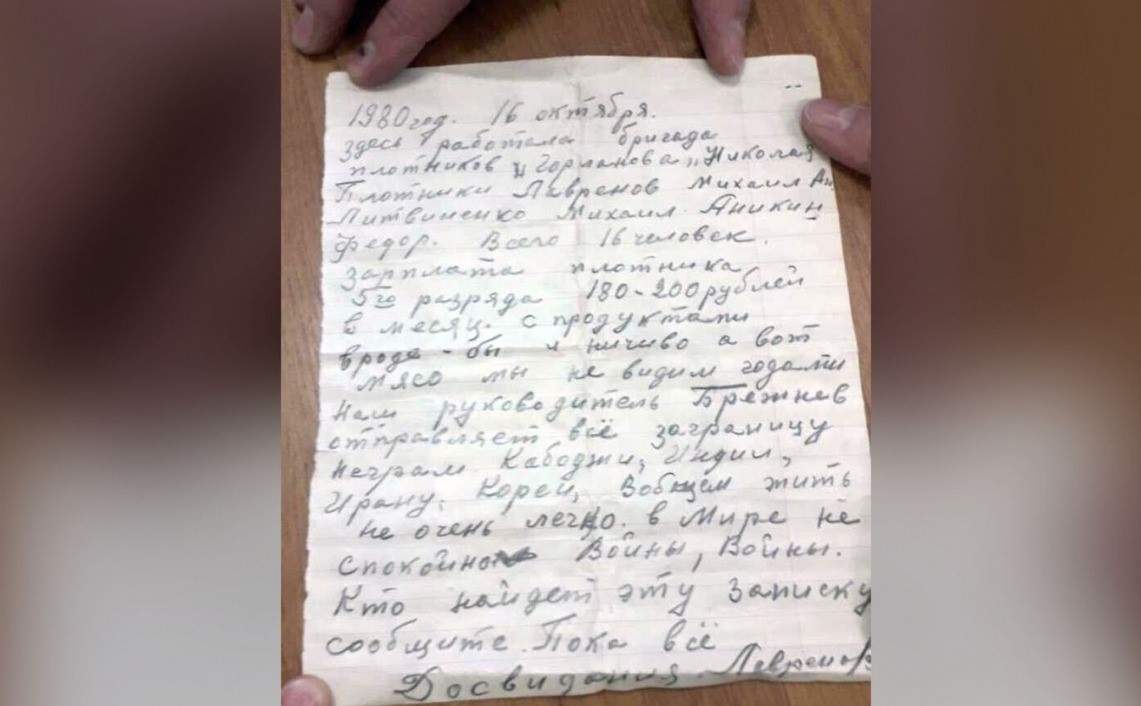 1980год. 16 октября.
Здесь работала бригада
плотников „Горланова„ Николая
Плотники Лавренов Михаил Ан
Литвиненко Михаил. Аникин
Федор. Всего 16 человек.
Зарплата плотника
5го разряда 180-200 рублей
в месяц. с продуктами
вроде-бы и ничиво а вот
мясо мы не видим годами
Наш руководитель Брежнев
отправляет всё заграницу
неграм Кабоджи, Индии,
Ирану. Кореи, Вобщем жить
не очень легко. в Мире не
спокойно Войны, Войны.
Кто найдет эту Записку
сообщите. Пока всё
Досвидания. Лавренов